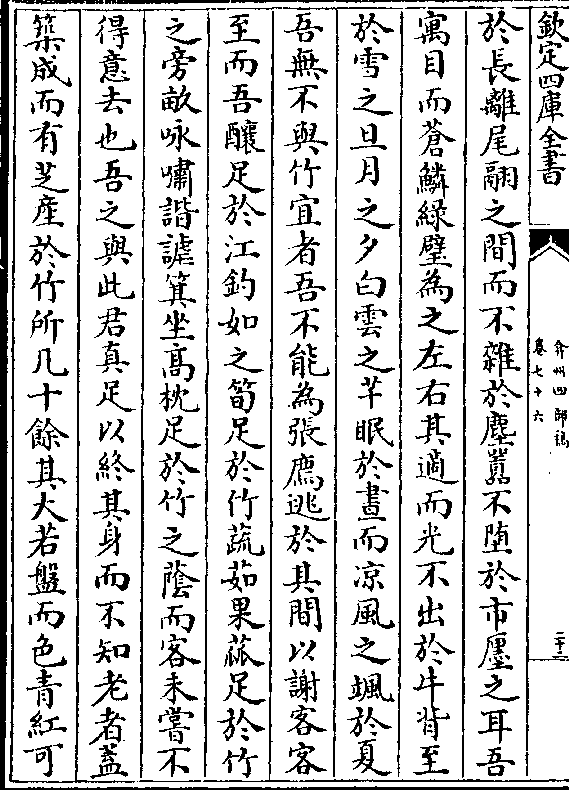 欽定四庫全書
弇州四部稿
卷七十六
二十三
於長離尾翮之間而不雜於塵囂不墮於市廛之耳吾
寓目而蒼鱗綠壁為之左右其適而光不出於牛背至
於雪之旦月之夕白雲之芊眠於晝而凉風之颯於夏
吾無不與竹宜者吾不能為張廌逃於其間以謝客客
至而吾釀足於江釣如之筍足於竹蔬茹果蓏足於竹
之旁畝咏嘯諧謔箕坐高枕足於竹之蔭而客未嘗不
得意去也吾之與此君真足以終其身而不知老者蓋
築成而有芝產於竹所几十餘其大若盤而色青紅可